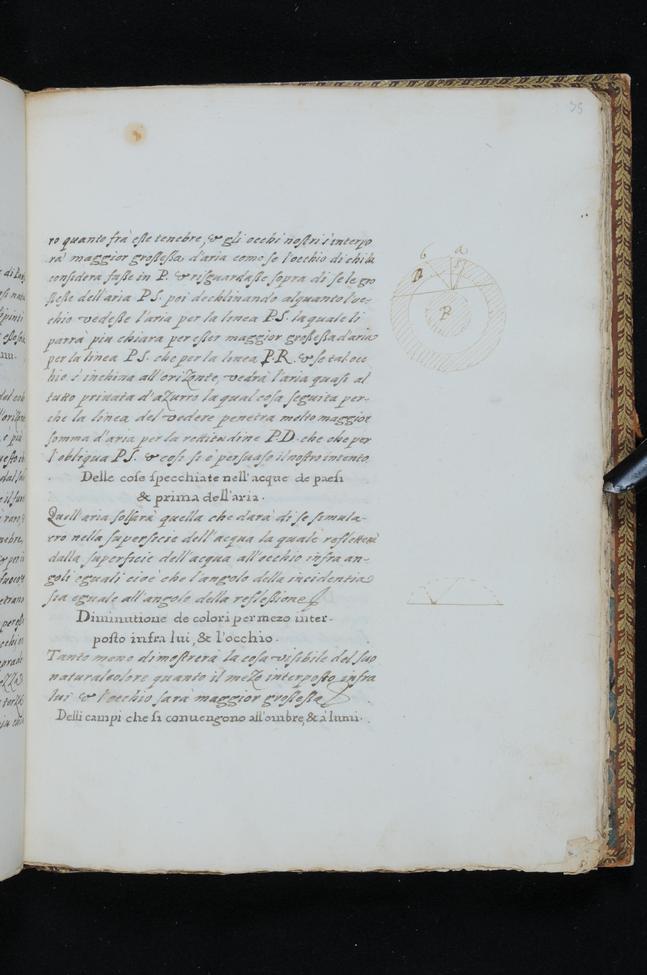 35
ro quanto frà este tenebre, & gli occhi nostri s'interpo
rà maggior grossessa d'aria como se l'occhio di chila
considera fusse in P. & risguardasse sopra di se le gro
ssesse dell'aria P S. poi declinando alquanto l'oc-
chio vedesse l'aria per la linea P S. la quale li
parrà piu chiara per esser maggior grossessa d'aria
per la linea P S. che per la linea P.R. & se tal occ
hio s'inchina all'oriZonte, vedrà l'aria quasi al
tutto privata d'aZurro la qual cosa seguita per-
che la linea del vedere penetra molto maggior
somma d'aria per la rettitudine P.D. che che per
l'obliqua P S. & cosi si è persuaso il nostro intento.
Delle cose specchiate nell'acque de paesi
& prima dell'aria.
Quell'aria sol sarà quella che darà di se simula-
cro nella superficie dell'acqua la quale refletterà
dalla superficie dell'acqua all'occhio infra an-
goli eguali cioè che l'angolo della incidentia
sia eguale all'angolo della reflessione
Diminutione de colori per mezo inter-
posto infra lui, & l'occhio.
Tanto meno dimostrerà la cosa visibile del suo
natural colore quanto il meZo interposto infra
lui & l'occhio sarà maggior grossessa
Delli campi che si convengono all'ombre, & à lumi.
6 a
R S
P